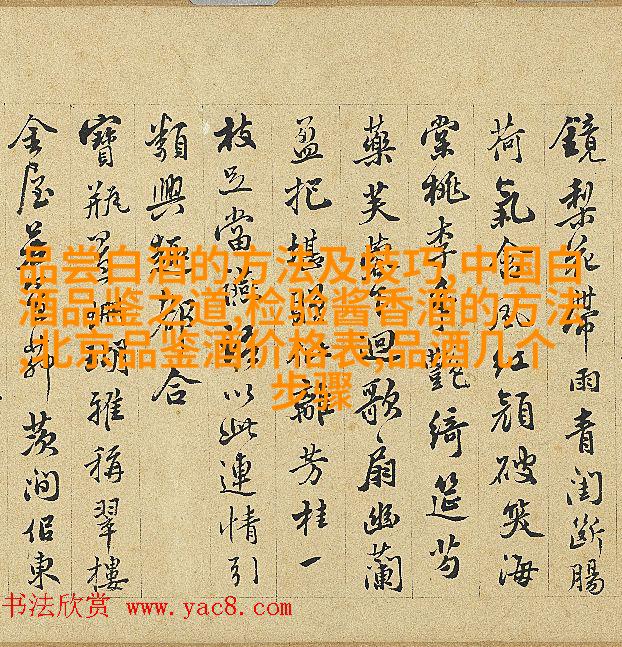 鏡梨花帶雨青閨斷腸
荷氣含風紅顏破笑海
棠桃李艷綺筵芍
藥芙蓉迴歌扇幽蘭
盈把堪離芳桂一
枝足當以此連情引
類興合
寶瓶雅稱翠樓
金屋茨澗佀東
品尝白酒的方法及技巧,中国白
酒品鉴之道,检验酱香酒的方法
,北京品鉴酒价格表,品酒几个
步骤
书法欣赏 www.yac8.com